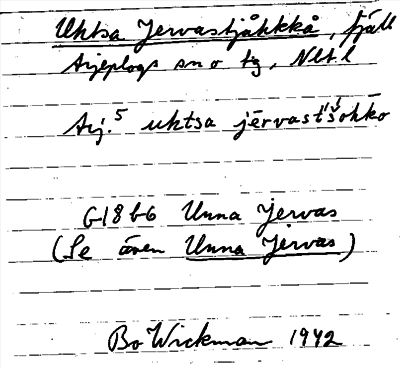 Uktsa Jervastjåkkå, fjäll
Arjeplogs sn o tg, Nbt l
Arj.⁵ uktsa jērvast'šohkø
G18 b6 Unna Jervas
(Se även Unna Jervas)
Bo Wickman 1942